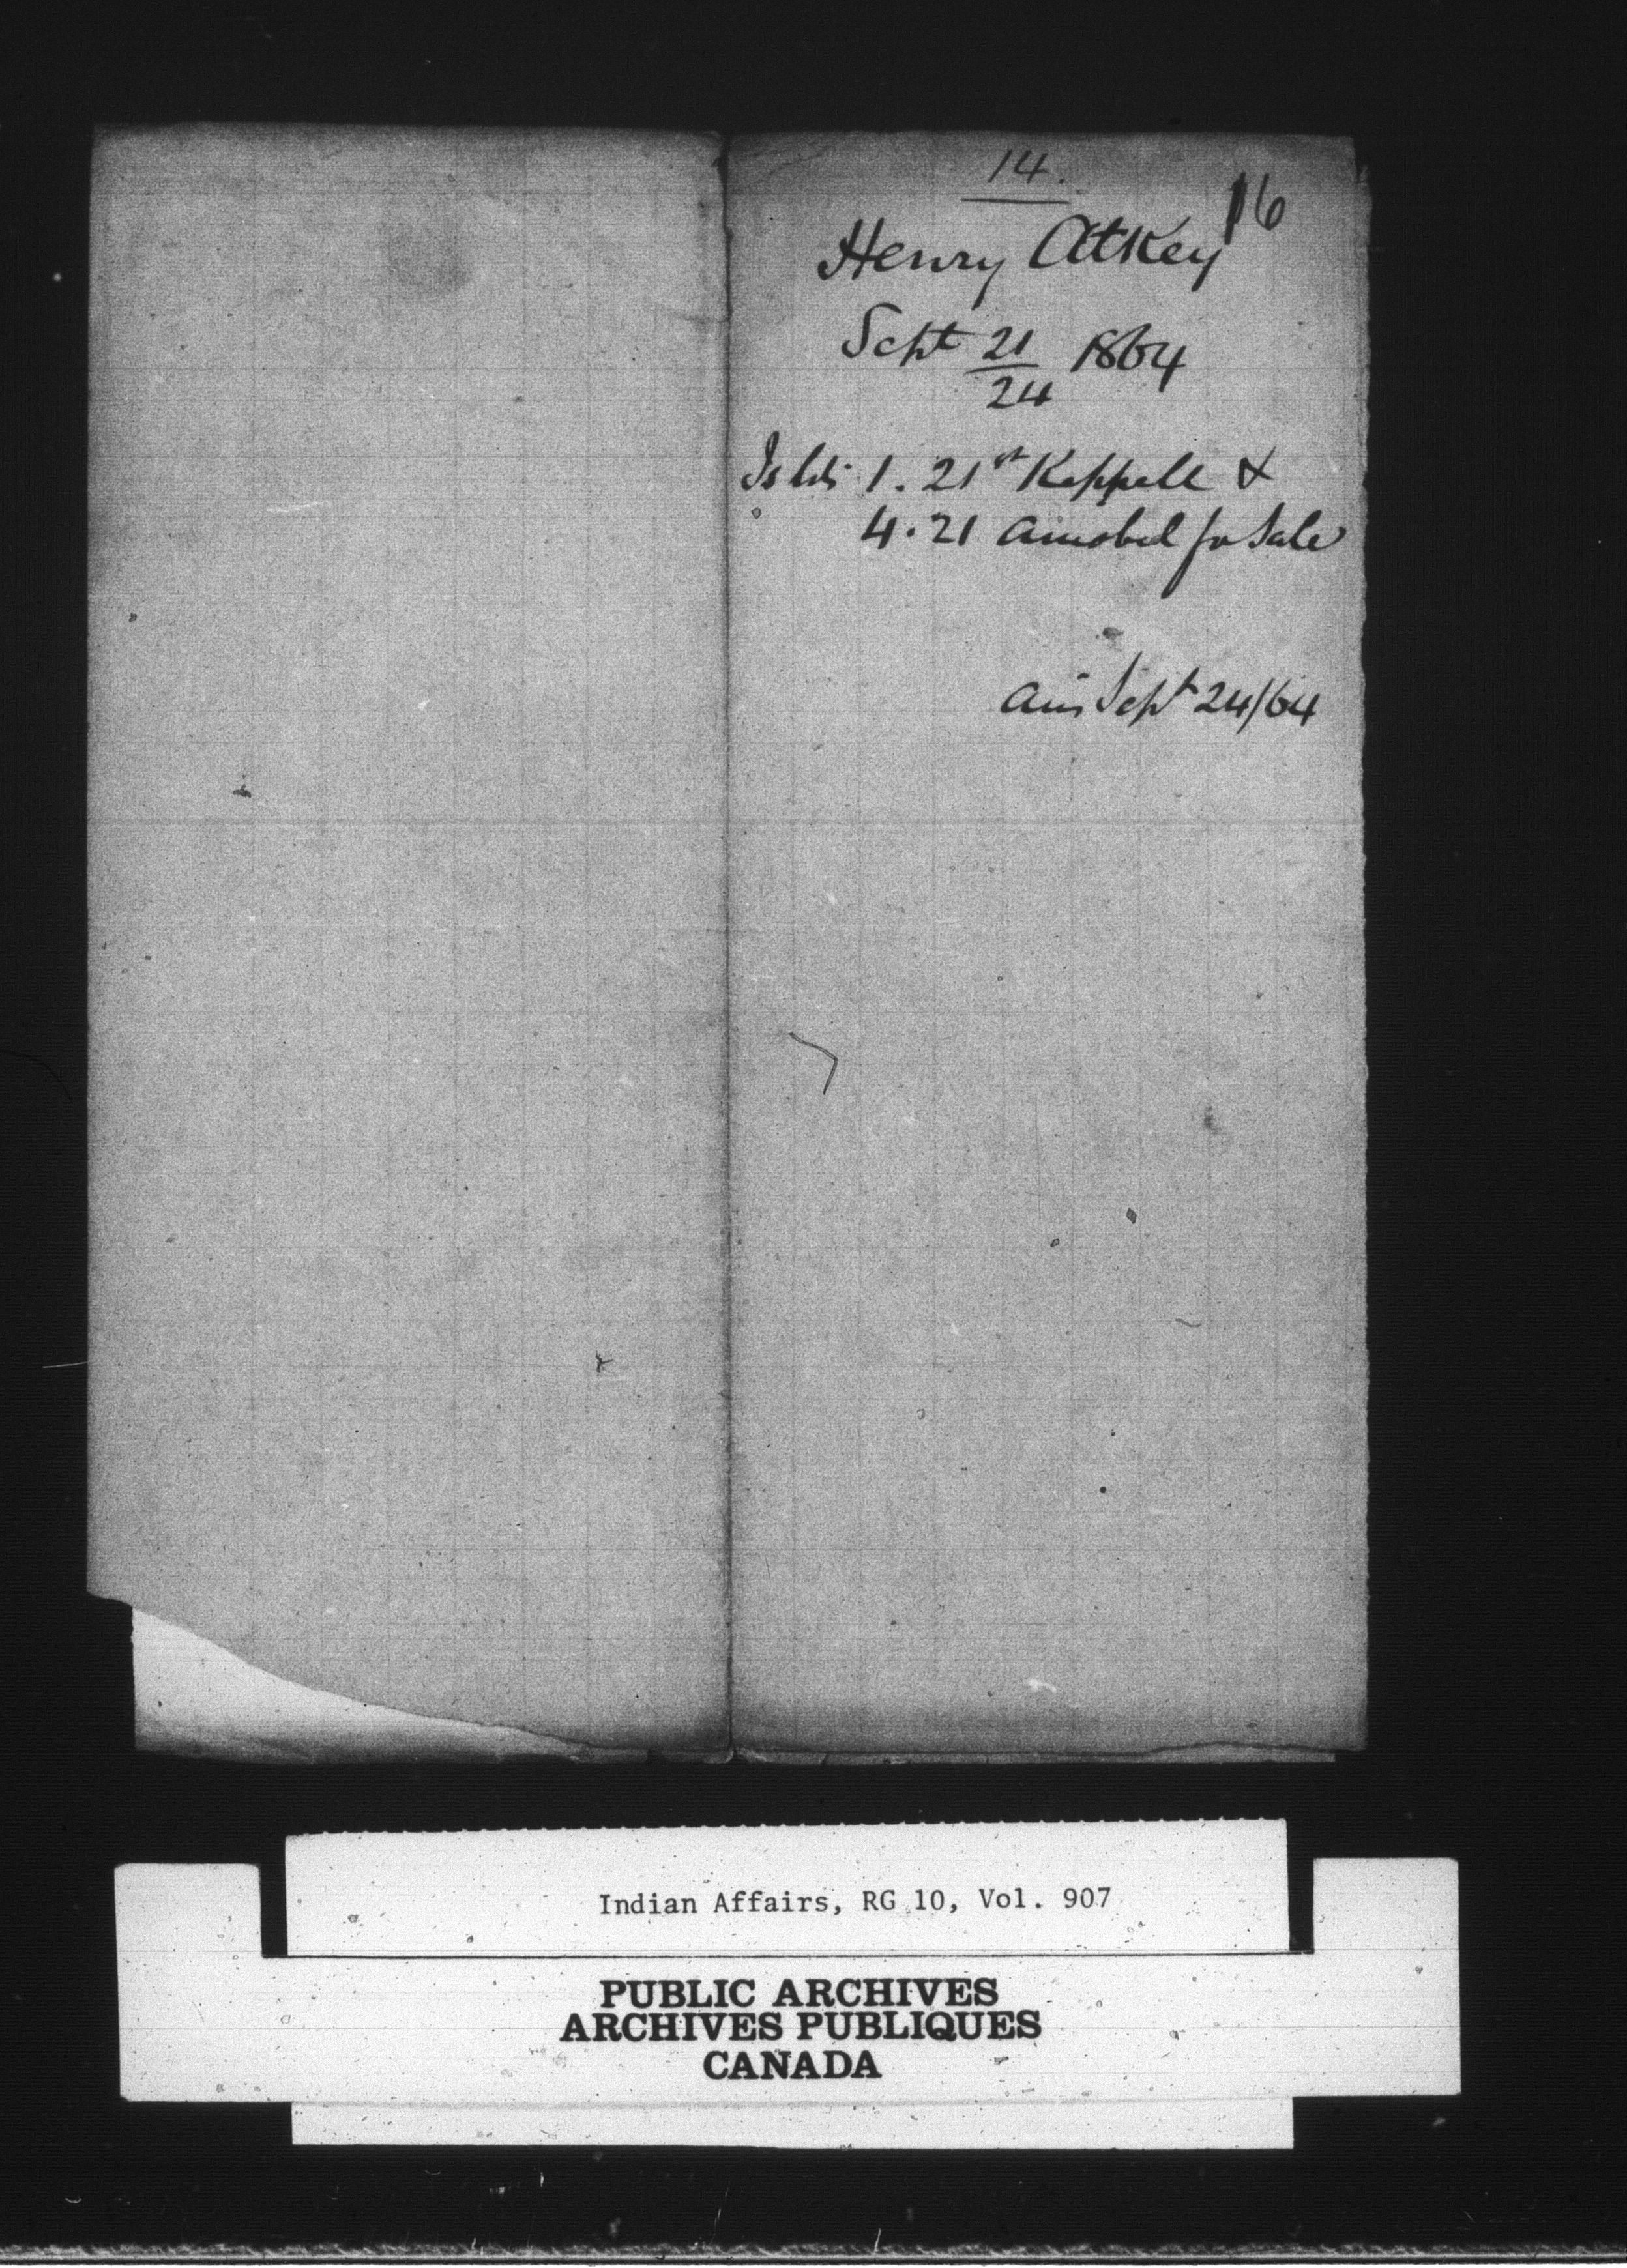 14.
16
Henry Atkey
Sept 21/24 1864
Is lot 1. 21st Keppell &
4. 21 Amabel for Sale
Ans Sept 24/64
Indian Affairs, RG 10, Vol. 907
PUBLIC ARCHIVES
ARCHIVES PUBLIQUES
CANADA